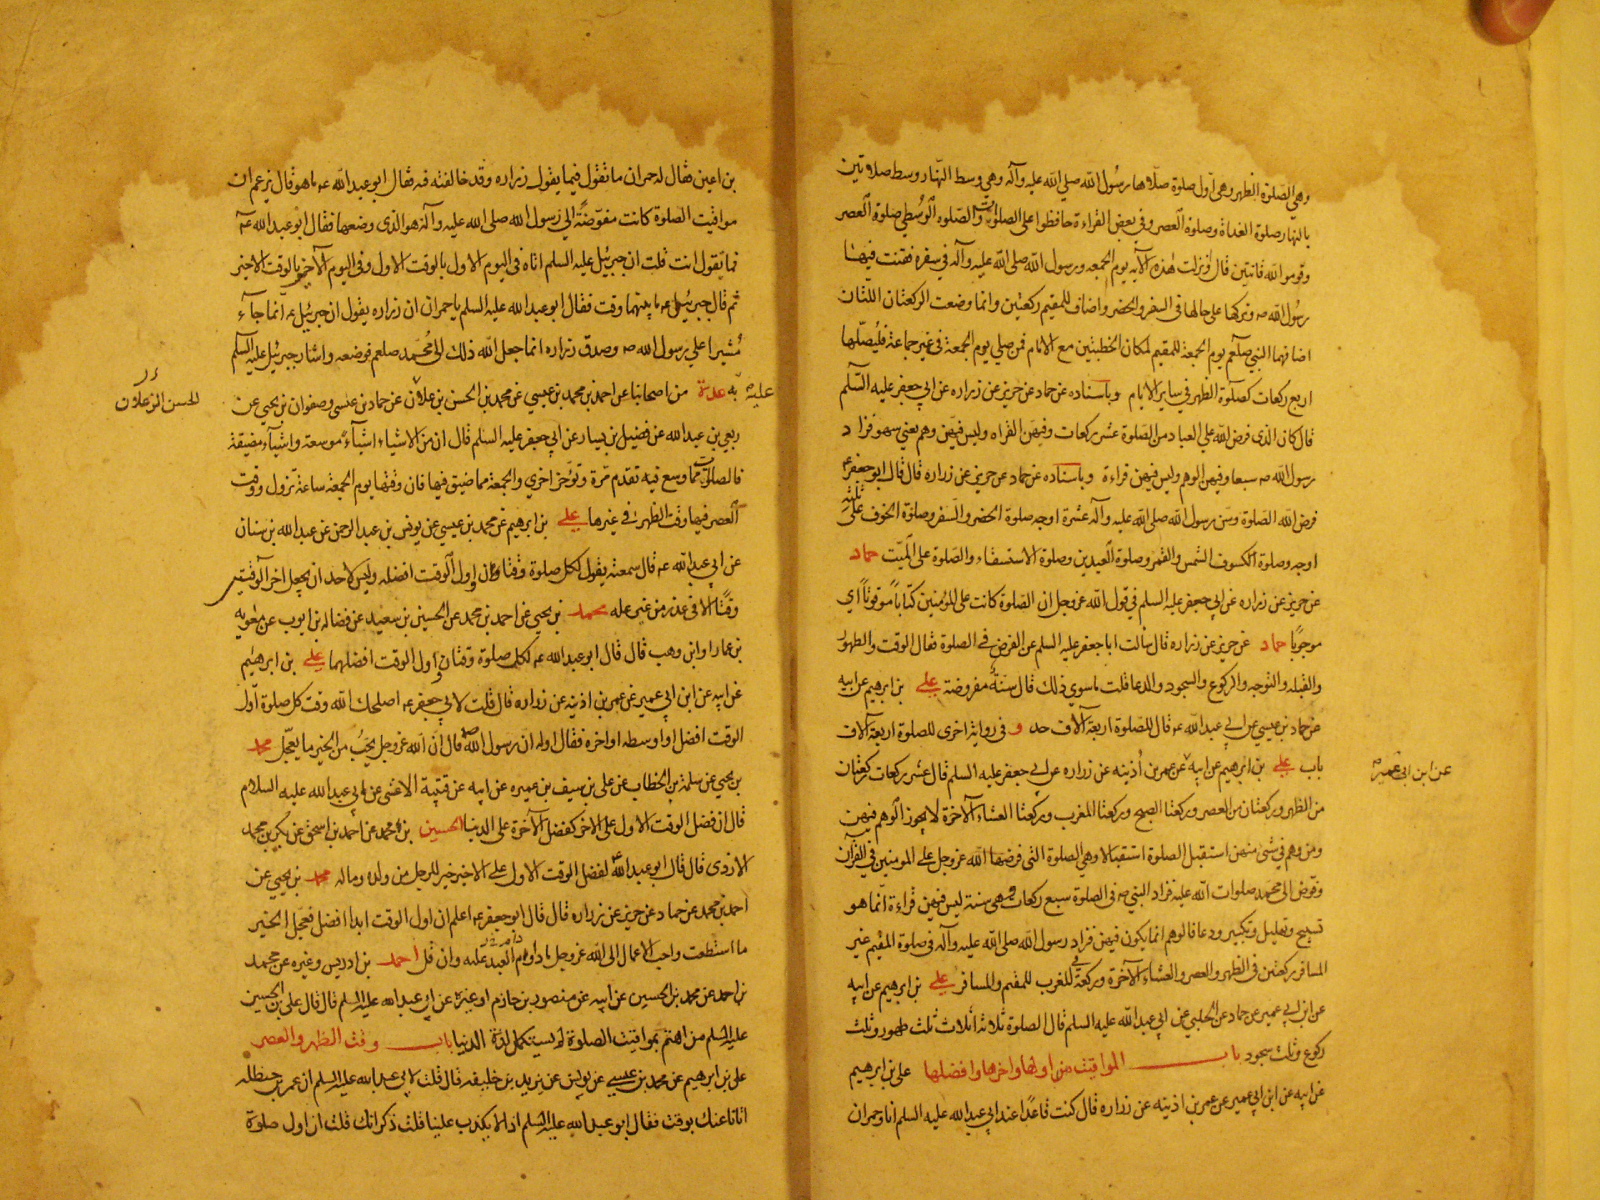 وهي الصلوة الظهر وهي اول صلوة صلاها رسول الله صلي الله عليه وآله وهي وسط النهار ووسط صلاتين
بالنهار صلوة الغداة وصلوة العصر وفي بعض القراءة حافظوا على الصلوات والصلوه الوسطي صلوة العصر
وقوموا لله قانتين قال ونزلت هذه الآيه يوم الجمعه ورسول الله صلى الله عليه وآله في سفره فقنت فيها
رسول الله ص وتركها على حالها في السفر والحضر واضاف للمقيم ركعتين وانما وضعت الركعتان اللتان
اضافهما النبي صلعم يوم الجمعة للمقيم لمكان الخطبتين مع الامام فمن صلي يوم الجمعة في غير جماعة فليصلها
اربع ركعات كصلوة الظهر في ساير الايام وباسناده عن حماد عن حريز عن زراره عن ابي جعفر عليه السلم
قال كان الذي فرض الله على العباد من الصلوة عشر ركعات وفيهن القراه وليس فيهن وهم يعني سهو فزاد
رسول الله ص سبعا وفيهن الوهم وليس فيهن قراءة وباسناده عن حماد عن حريز عن زراره قال قال ابو جعفر ع
فرض الله الصلوة وسن رسول الله صلى الله عليه وآله عشرة اوجه صلوة الحضر والسفر وصلوة الخوف على ثلثة
اوجه وصلوة الكسوف الشمس والقمر وصلوة العيدين وصلوة الاستسقاء والصلوة على الميت حماد
عن حريز عن زراره عن ابي جعفر عليه السلم في قول الله عز وجل ان الصلوة كانت على المؤمنين كتابا موقوتا اي
موجوبا حماد عن حريز عن زراره قال سالت ابا جعفر عليه السلم عن الفرض في الصلوة فقال الوقت والطهور
والقبله والتوجه والركوع والسجود والدعا قلت ما سوي ذلك قال سنة مفروضة علي بن ابرهيم عن ابيه
عن حماد بن عيسي عن ابي عبد الله ع قال للصلوة اربعة آلاف حد و في رواية اخرى للصلوة اربعة آلاف
باب علي بن ابرهيم عن ابيه عن عمر بن أذينة عن زراره عن ابي جعفر عليه السلم قال عشر ركعات ركعتان
عن ابن ابي عمير
من الظهر وركعتان من العصر وركعتا الصبح وركعتا المغرب وركعتا العشاء الآخرة لا يجوز الوهم فيهن
ومن وهم في شئ منهن استقبل الصلوة استقبالا وهي الصلوة التي فرضها الله عز وجل على المومنين في القرآن
وفوض الى محمد صلوات الله عليه فزاد النبي ص في الصلوة سبع ركعات هي سنة ليس فيهن قراءة انما هو
تسبيح وتهليل وتكبير ودعا فالوهم انما يكون فيهن فزاد رسول الله صلى الله عليه وآله في صلوة المقيم غير
المسافر ركعتين في الظهر والعصر والعشاء الآخرة وركعة في المغرب للمقيم والمسافر علي بن ابرهيم عن ابيه
عن ابن ابي عمير عن حماد عن الحلبي عن ابي عبد الله عليه السلم قال الصلوة ثلاثة اثلاث ثلث طهور وثلث
ركوع وثلث سجود باب المواقيت من اولها واخرها وافضلها علي بن ابرهيم
عن ابيه عن ابن ابي عمير عن عمر بن اذينه عن زراره قال كنت قاعدا عند ابي عبد الله عليه السلم انا وحمران
بن اعين فقال له حمران ما تقول فيما يقول زراره وقد خالفته فيه فقال ابو عبد الله ع ما هو قال يزعم ان
مواقيت الصلوة كانت مفوضة الي رسول الله صلى الله عليه وآله هو الذي وضعها فقال ابو عبد الله ع
فما تقول انت قلت ان جبرئيل عليه السلم اتاه في اليوم الاول بالوقت الاول وفي اليوم الآخر بالوقت الاخير
ثم قال جبرئيل ع ما بينهما وقت فقال ابو عبد الله عليه السلم يا حمران ان زراره يقول ان جبرئيل ع انما جآء
مشيرا على رسول الله ص وصدق زراره انما جعل الله ذلك الى محمد صلعم فوضعه واشار جبرئيل عليه السلم
عليه به عدة من اصحابنا عن احمد بن محمد بن عيسي عن محمد بن الحسن بن علان عن حماد بن عيسى وصفوان بن يحيي عن
ربعي بن عبد الله عن فضيل بن يسار عن ابي جعفر عليه السلم قال ان من الاشياء اشيآء موسعة واشيآء مضيقة
فالصلوة مما وسع فيه تقدم مرة وتؤخر اخري والجمعة مما ضيق فيها فان وقتها يوم الجمعة ساعة تزول ووقت
العصر فيها وقت الظهر في غيرها علي بن ابرهيم عن محمد بن عيسي عن يونس بن عبد الرحمن عن عبد الله بن سنان
عن ابي عبد الله ع قال سمعته يقول لكل صلوة وقتان واول الوقت افضله وليس لاحد ان يجعل اخر الوقتين
وقتا الا في عذر من غير عله محمد بن يحيي عن احمد بن محمد عن الحسين بن سعيد عن فضاله بن ايوب عن معويه
بن عمار او ابن وهب قال قال ابو عبد الله ع لكل صلوة وقتان واول الوقت افضلهما علي بن ابرهيم
عن ابيه عن ابن ابي عمير عن عمر بن اذينه عن زراره قال قلت لابي جعفر ع اصلحك الله وقت كل صلوة اول
الوقت افضل او اوسطه او اخره فقال اوله ان رسول الله قال ان الله عز وجل يحب من الخير ما يعجل محمد
بن يحيي عن سلمة بن الخطاب عن علي بن سيف بن عميره عن ابيه عن قتيبة الاعشى عن ابي عبد الله عليه السلام
قال ان فضل الوقت الاول على الاخر كفضل الآخرة على الدنيا الحسين بن محمد عن احمد بن اسحق عن بكر بن محمد
الازدى قال قال ابو عبد الله لفضل الوقت الاول على الاخير خير للرجل من ولده وماله محمد بن يحيي عن
احمد بن محمد عن حماد عن حريز عن زراره قال قال ابو جعفر ع اعلم ان اول الوقت ابدا افضل فعجل الخير
ما استطعت واحب الاعمال الى الله عز وجل ما داوم العبد عليه وان قل احمد بن ادريس وغيره عن محمد
بن احمد عن محمد بن الحسين عن ابيه عن منصور بن حازم او غيره عن ابي عبد الله عليه السلم قال قال علي بن الحسين
عليه السلم من اهتم بمواقيت الصلوة لم يستكمل لذة الدنيا باب وقت الظهر والعصر
علي بن ابرهيم عن محمد بن عيسي عن يونس عن يزيد بن خليفه قال قلت لابي عبد الله عليه السلم ان عمر بن حنظله
اتانا عنك بوقت فقال ابو عبد الله عليه السلم اذا لا يكذب علينا قلت ذكر انك قلت ان اول صلوة